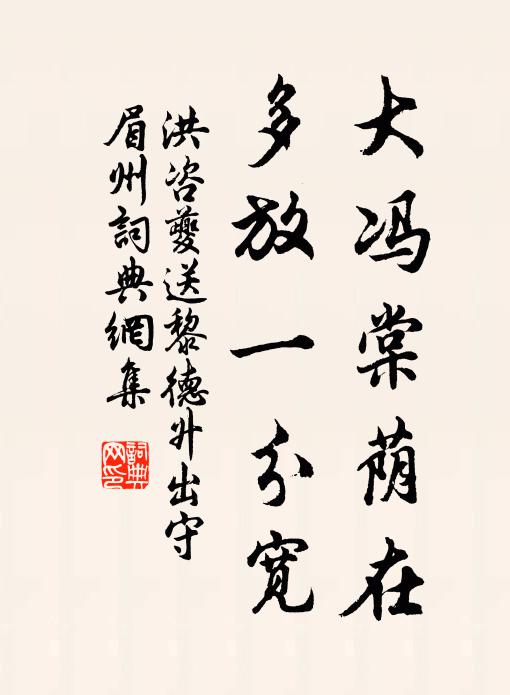 大冯棠荫在
多放一分宽
洪咨夔送黎德升出守
眉州詞典網集
詞典网印